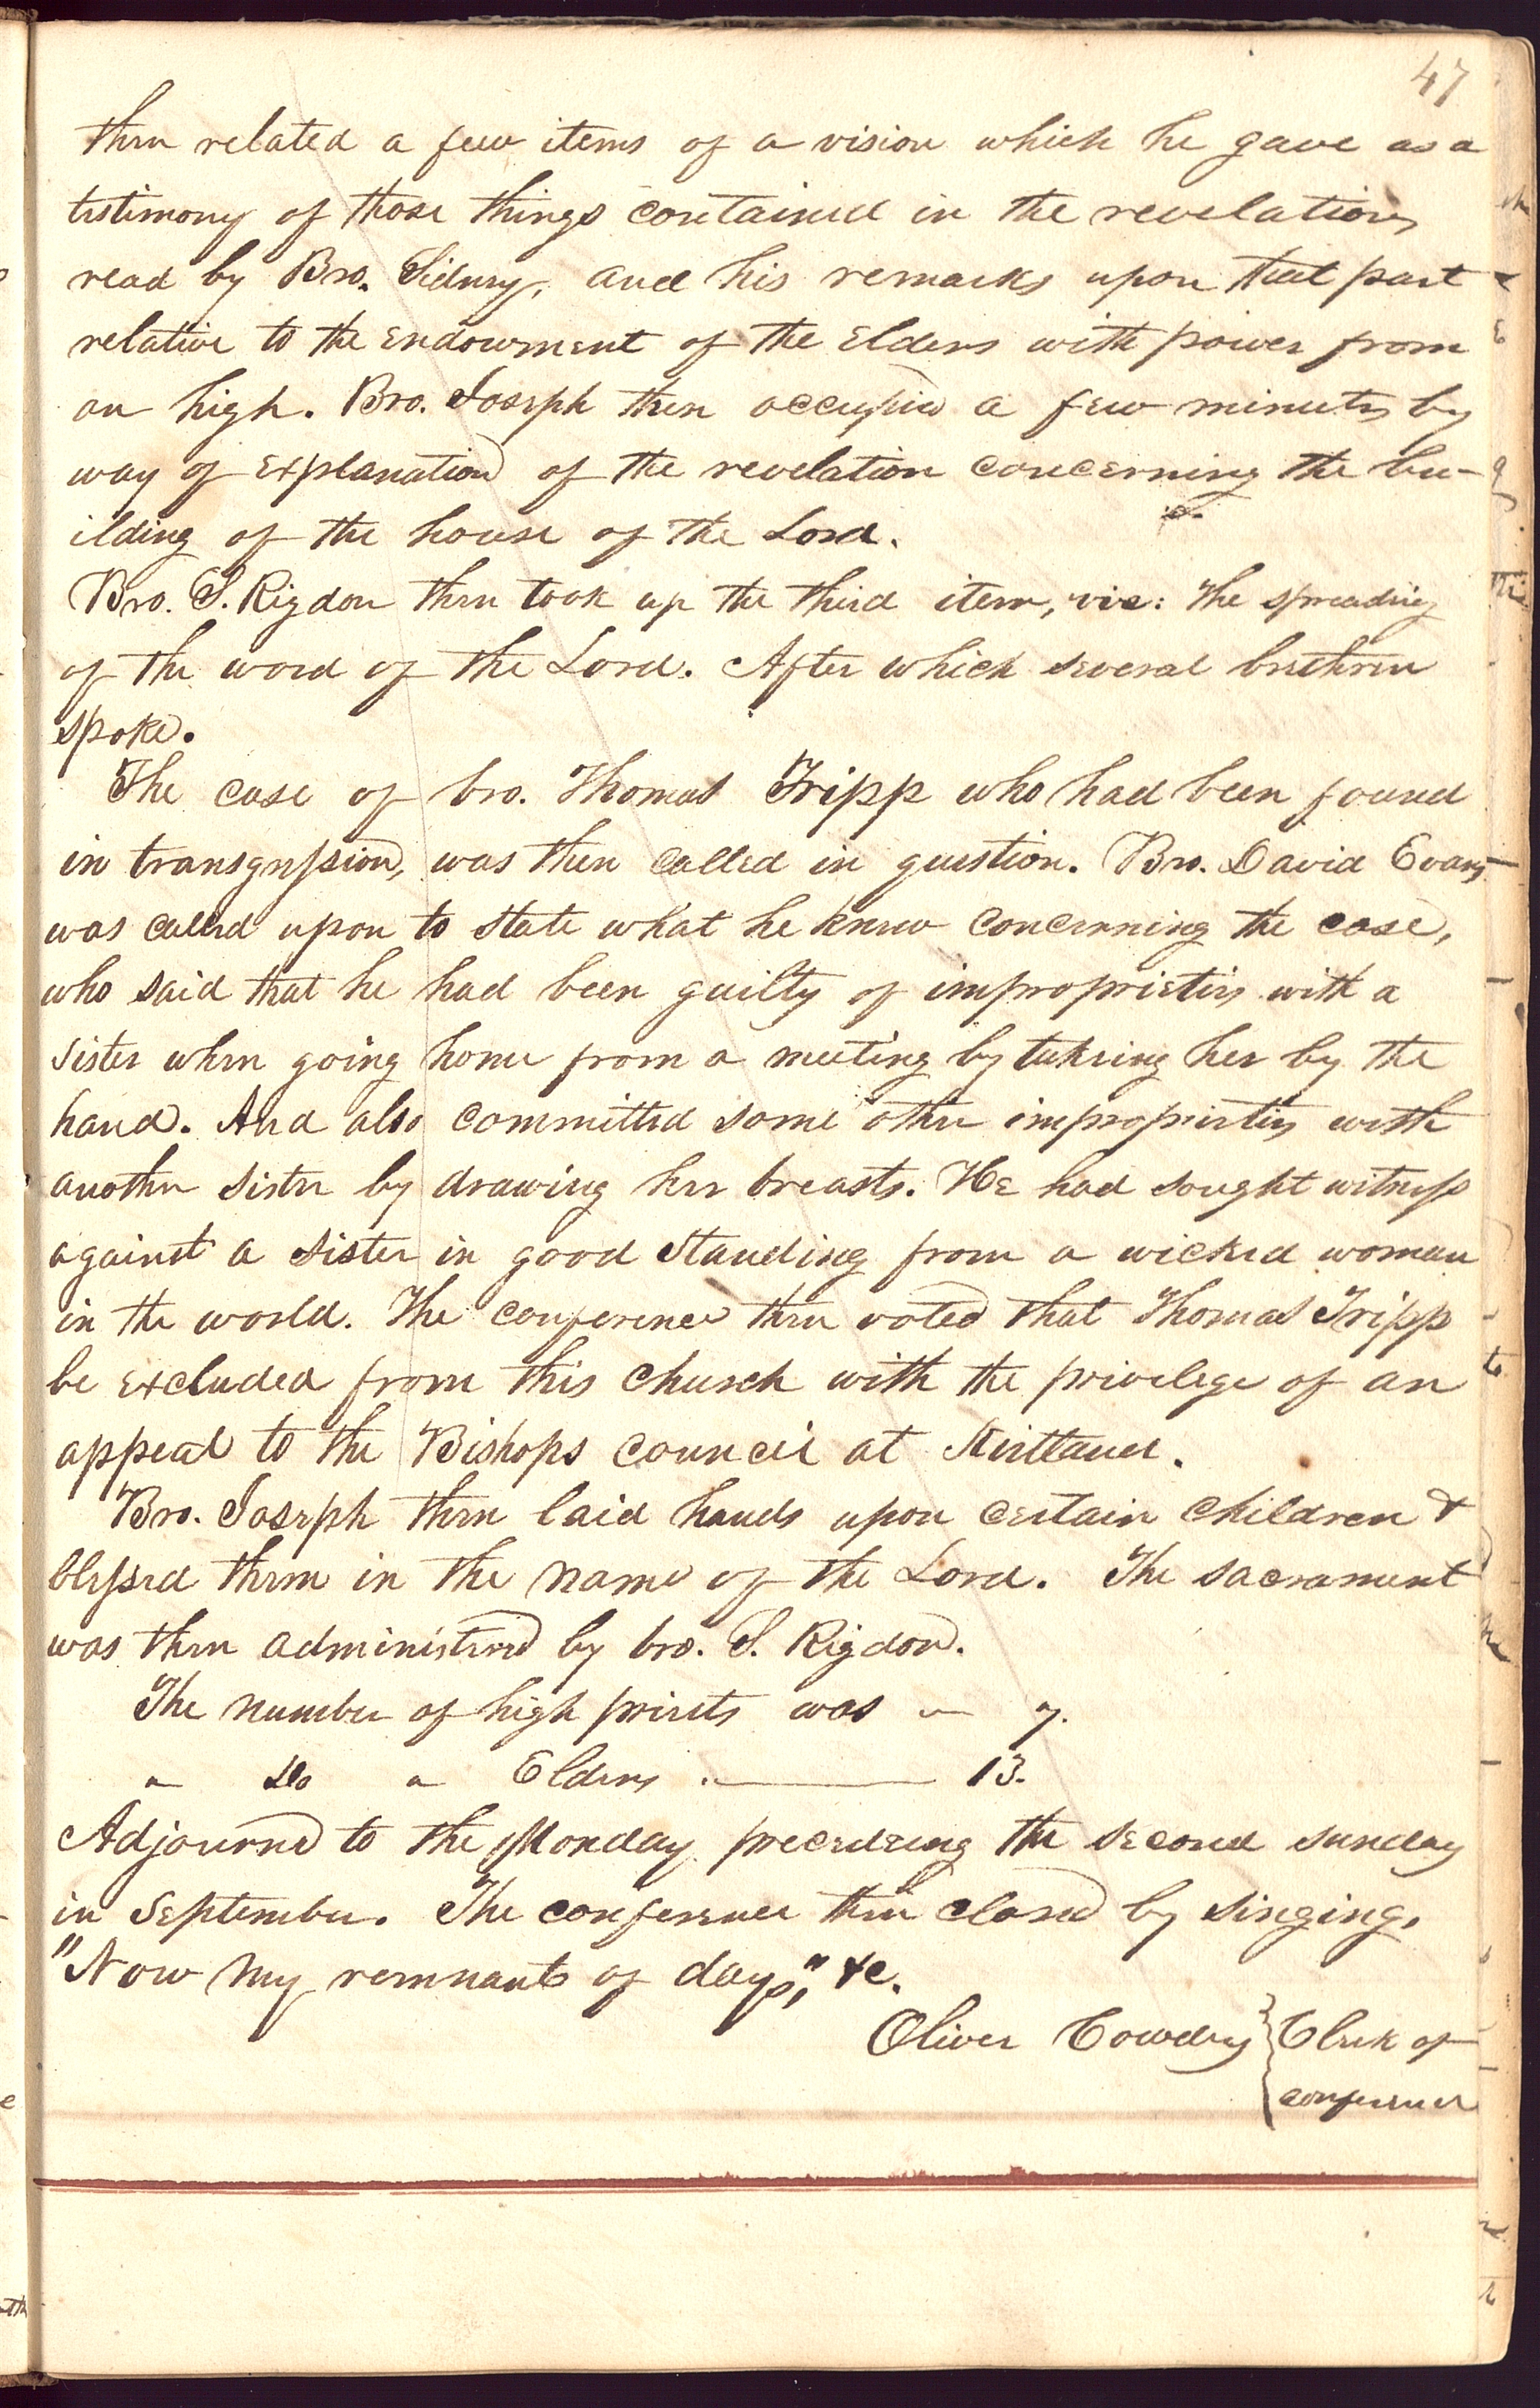 47
then related a few items of a vision which he gave as a
testimony of those things contained in the revelations
read by Bro. Sidney, and his remarks upon that part
relative to the endowment of the Elders with power from
on high. Bro. Joseph then occupied a few minutes by
way of explanation of the revelation concerning the bu-
ilding of the house of the Lord.
Bro. S. Rigdon then took up the third item, viz: The spreading
of the word of the Lord. After which several brethren
spoke.
The case of bro. Thomas Tripp who had been found
in transgression, was then called in question. Bro. David Evans
was called upon to state what he knew concerning the case,
who said that he had been guilty of improprieties with a
sister when going home from a meeting by takeing her by the
hand. And also committed some other improprieties with
another sister by drawing her breasts. He had sought witness
against a sister in good standing from a wicked woman
in the world. The conference then voted that Thomas Tripp
be excluded from this church with the privelege of an
appeal to the Bishops council at Kirtland.
Bro. Joseph then laid hands upon certain children &
blessed them in the name of the Lord. The sacrament
was then administered by bro. S. Rigdon.
The number of high priests was — 7.
" do " Elders . — 13.
Adjourned to the Monday preceedeing the second sunday
in September. The conference then closed by singing,
"Now my remnant of days," &c.
Oliver Cowdery } Clerk of
conference